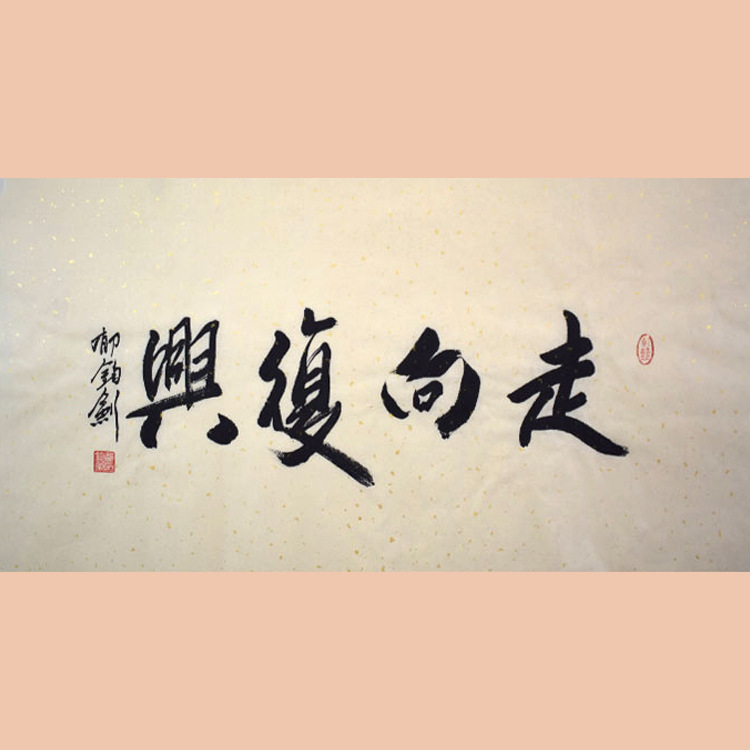 走向復興
郁鈞劍